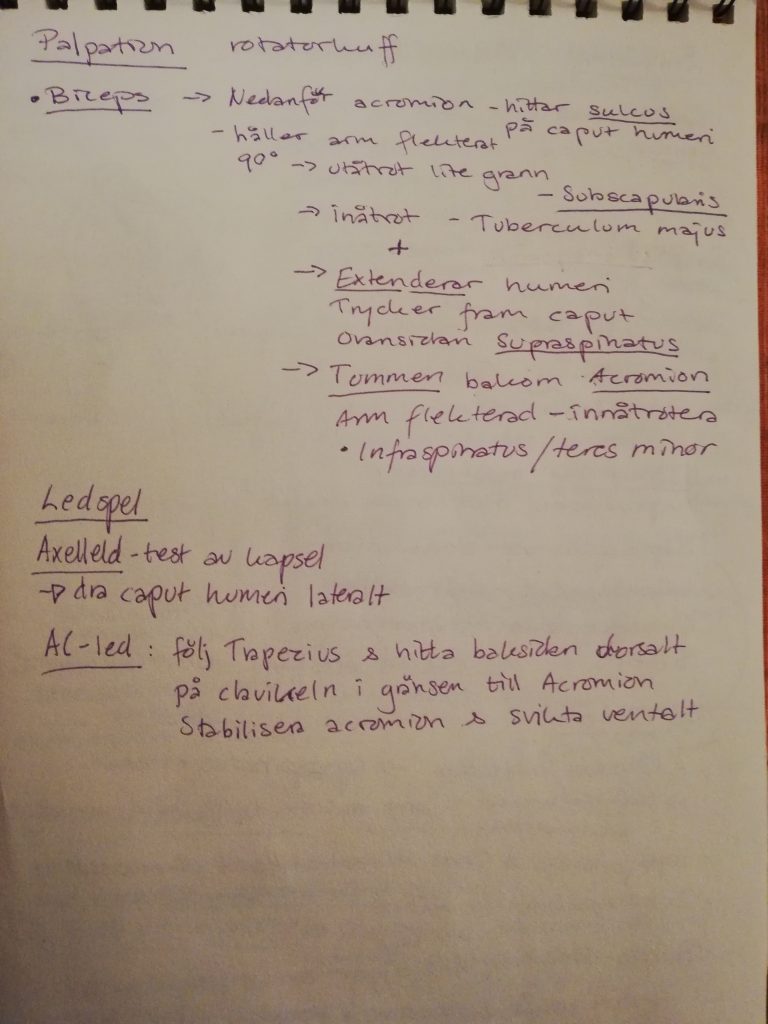 Palpation rotatorkuff
• Biceps → Nedanför acromion - hittar sulcus
på caput humeri
- håller arm flekterat
90° → utåtrot lite grann
- Subscapularis
→ inåtrot - Tuberculum majus
+
→ Extenderar humeri
Trycker fram caput
Ovansidan Supraspinatus
→ Tummen bakom Acromion
Arm flekterad - innåtrotera
• Infraspinatus/teres minor
Ledspel
Axelleld - test av kapsel
→ dra caput humeri lateralt
AC-led : följ Trapezius & hitta baksidan dorsalt
på clavikeln i gränsen till Acromion
Stabilisera acromion & svikta ventalt